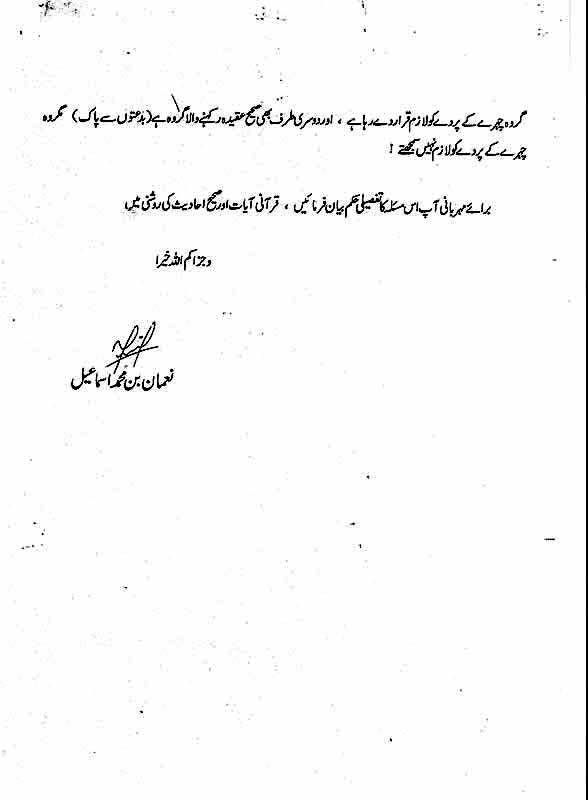 گروہ چہرے کے پردے کو لازم قرار دے رہا ہے ، اور دوسری طرف بھی صحیح عقیدہ رکھنے والا گروہ ہے (بدعتوں سے پاک) مگر وہ
چہرے کے پردے کو لازم نہیں سمجھتے !
برائے مہربانی آپ اس مسئلہ کا تفصیلی حکم بیان فرمائیں ، قرآنی آیات اور صحیح احادیث کی روشنی میں
وجزاکم اللہ خیرا
نعمان بن محمد اسماعیل